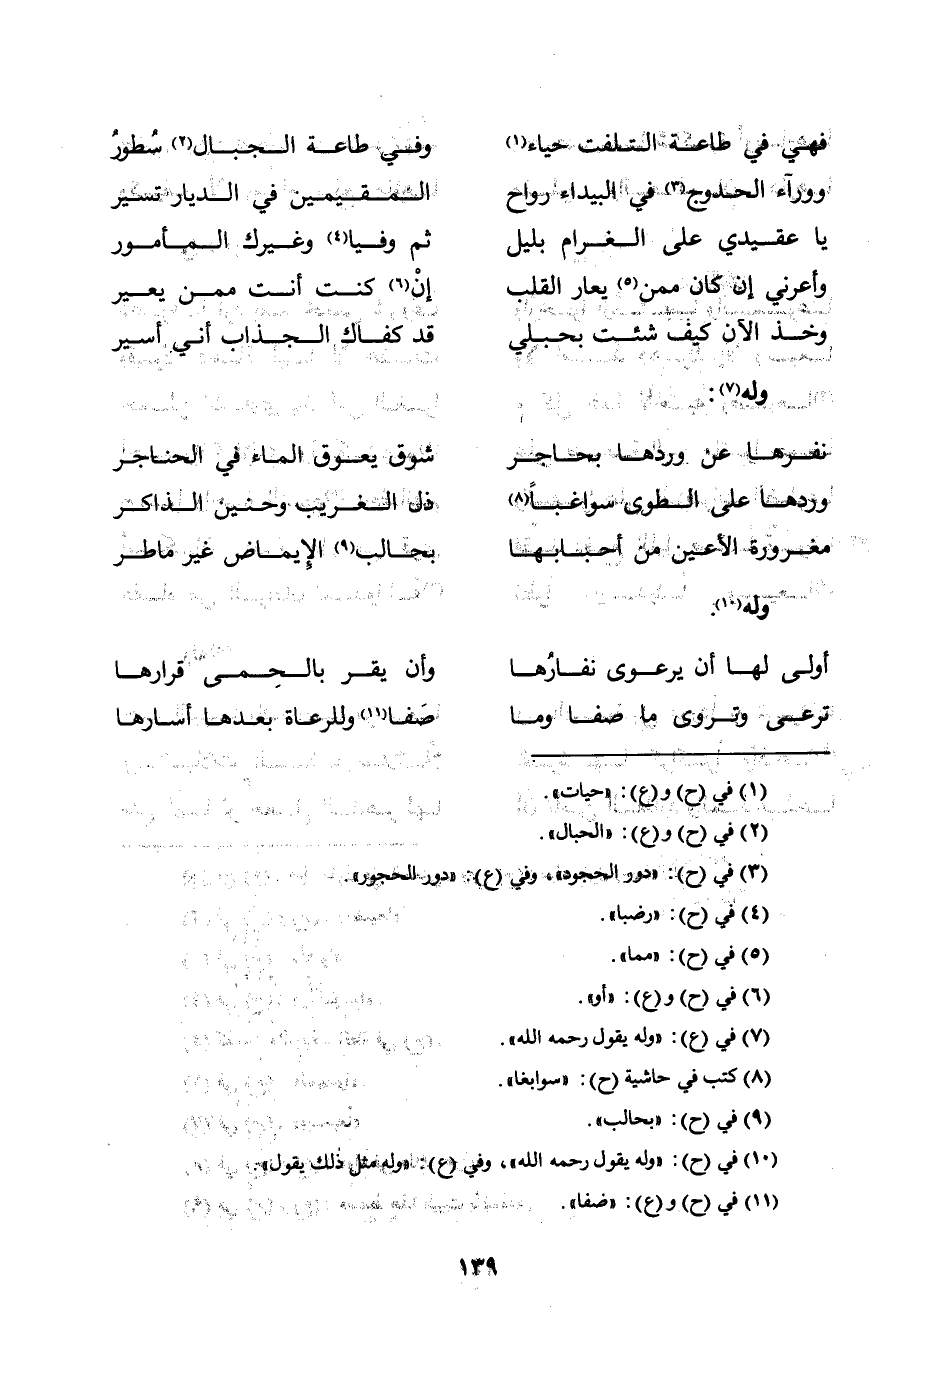 فهي في طاعة التلفت حياء(١) وفي طاعة الجبال(٢) سُطورُ
وورآء الحدوج(٣) في البيداء رواح المقيمين في الديار تسير
يا عقيدي على الغرام بليل ثم وفيا(٤) وغيرك المأمور
وأعرني إن كان ممن(٥) يعار القلب إنْ(٦) كنت أنت ممن يعير
وخذ الآن كيف شئت بحبلي قد كفاك الجذاب أني أسير
وله(٧):
نفرها عن وردها بحاجر شوق يعوق الماء في الحناجر
وردها على الطوى سواغباً(٨) ذل الغريب وحنين الذاكر
مغرورة الأعين من أحبابها بجالب(٩) الإيماض غير ماطر
وله(١٠):
أولى لها أن يرعوى نفارُها وأن يقر بالحمى قرارها
ترعى وتروى ما صفا وما ضَفا(١١) وللرعاة بعدها أسارها
(١) في (ح) و(ع): «حيات».
(٢) في (ح) و(ع): «الحبال».
(٣) في (ح): «دور الحجود»، وفي (ع): «دور للحجور».
(٤) في (ح): «رضبا».
(٥) في (ح): «مما».
(٦) في (ح) و(ع): «أو».
(٧) في (ع): «وله يقول رحمه الله».
(٨) كتب في حاشية (ح): «سوابغا».
(٩) في (ح): «بحالب».
(١٠) في (ح): «وله يقول رحمه الله»، وفي (ع): «وله مثل ذلك يقول»
(١١) في (ح) و(ع): «ضفا».
١٣٩